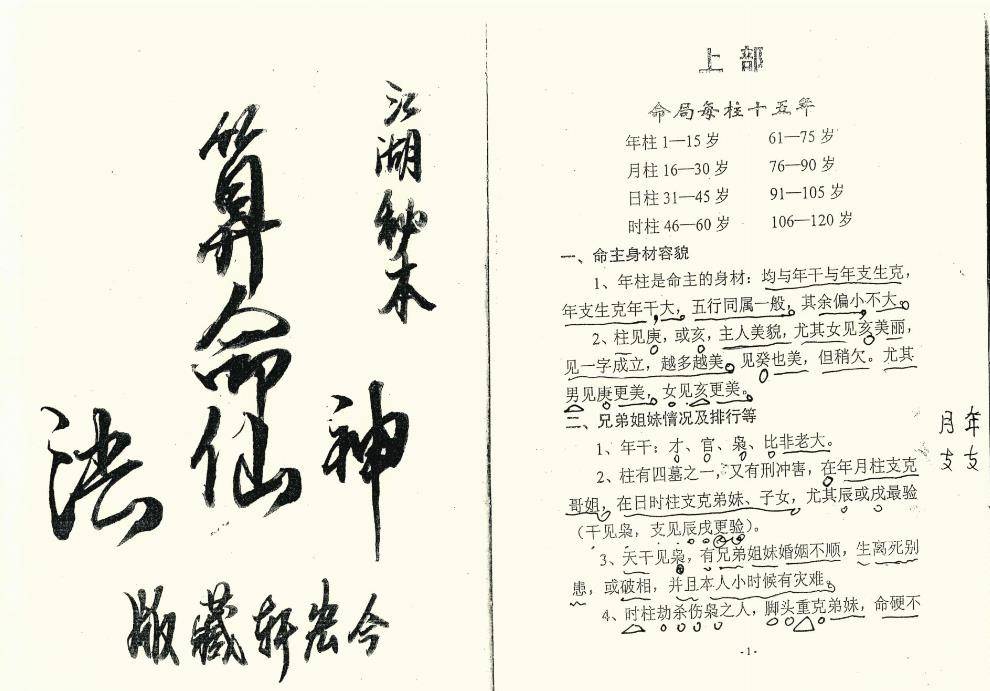 江湖秘本
算命
神仙法
今宏轩藏版
上部
命局每柱十五年
年柱 1—15 岁 61—75 岁
月柱 16—30 岁 76—90 岁
日柱 31—45 岁 91—105 岁
时柱 46—60 岁 106—120 岁
一、命主身材容貌
1、年柱是命主的身材：均与年干与年支生克，
年支生克年干大，五行同属一般，其余偏小不大。
2、柱见庚，或亥，主人美貌，尤其女见亥美丽，
见一字成立，越多越美。见癸也美，但稍欠。尤其
男见庚更美，女见亥更美。
二、兄弟姐妹情况及排行等
1、年干：才、官、枭、比非老大。
2、柱有四墓之一，又有刑冲害，在年月柱支克
哥姐，在日时柱支克弟妹、子女，尤其辰或戌最验
（干见枭，支见辰戌更验）。
3、天干见枭，有兄弟姐妹婚姻不顺，生离死别
患，或破相，并且本人小时候有灾难。
4、时柱劫杀伤枭之人，脚头重克弟妹，命硬不
年支
月支
-1-